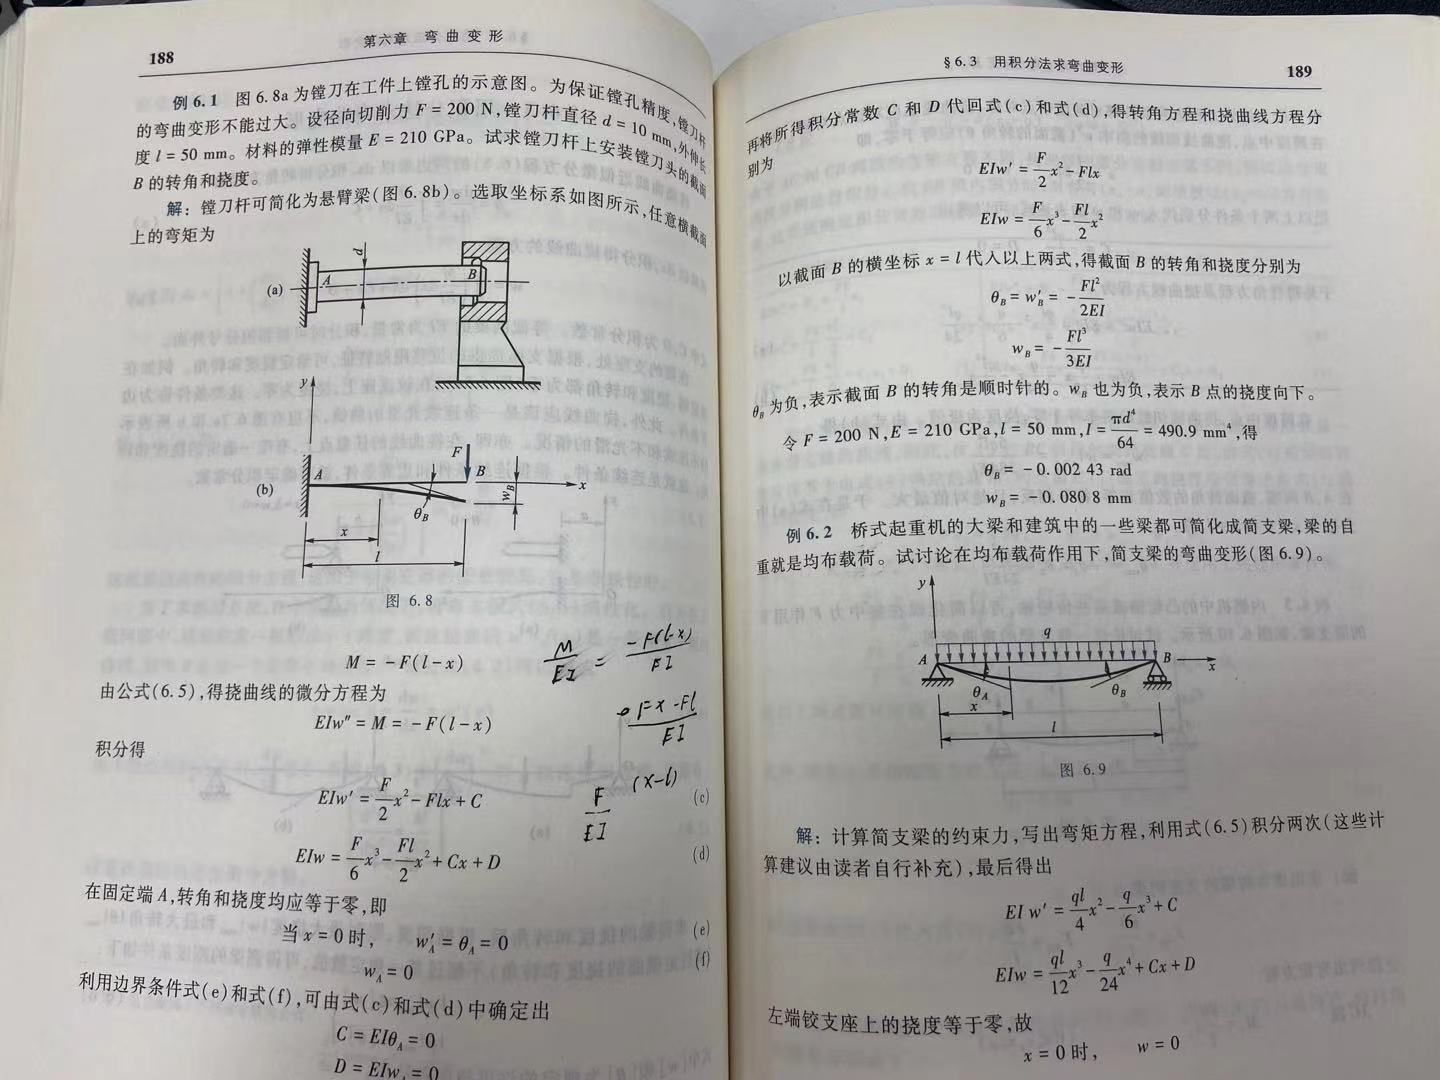 188
第六章 弯曲变形
例 6.1 图 6.8a 为镗刀在工件上镗孔的示意图。为保证镗孔精度,镗刀杆
的弯曲变形不能过大。设径向切削力 F = 200 N,镗刀杆直径 d = 10 mm,外伸长
度 l = 50 mm。材料的弹性模量 E = 210 GPa。试求镗刀杆上安装镗刀头的截面
B 的转角和挠度。
解: 镗刀杆可简化为悬臂梁(图 6.8b)。选取坐标系如图所示,任意横截面
上的弯矩为
(a)
A
d
B
y
(b)
A
F
B
x
w_B
θ_B
x
l
图 6.8
M = -F(l-x)
M/EI = -F(l-x)/EI
由公式(6.5),得挠曲线的微分方程为
Fx-Fl/EI
EIw″ = M = -F(l-x)
积分得
F/EI (x-l)
EIw′ = F/2 x² - Flx + C (c)
EIw = F/6 x³ - Fl/2 x² + Cx + D (d)
在固定端 A,转角和挠度均应等于零,即
当 x = 0 时, w′_A = θ_A = 0 (e)
w_A = 0 (f)
利用边界条件式(e)和式(f),可由式(c)和式(d)中确定出
C = EIθ_A = 0
D = EIw_A = 0
§6.3 用积分法求弯曲变形
189
再将所得积分常数 C 和 D 代回式(c)和式(d),得转角方程和挠曲线方程分
别为
EIw′ = F/2 x² - Flx
EIw = F/6 x³ - Fl/2 x²
以截面 B 的横坐标 x = l 代入以上两式,得截面 B 的转角和挠度分别为
θ_B = w′_B = - Fl²/2EI
w_B = - Fl³/3EI
θ_B 为负,表示截面 B 的转角是顺时针的。w_B 也为负,表示 B 点的挠度向下。
令 F = 200 N,E = 210 GPa,l = 50 mm,I = πd⁴/64 = 490.9 mm⁴,得
θ_B = -0.002 43 rad
w_B = -0.080 8 mm
例 6.2 桥式起重机的大梁和建筑中的一些梁都可简化成简支梁,梁的自
重就是均布载荷。试讨论在均布载荷作用下,简支梁的弯曲变形(图 6.9)。
y
q
A
B
x
θ_A
θ_B
x
l
图 6.9
解: 计算简支梁的约束力,写出弯矩方程,利用式(6.5)积分两次(这些计
算建议由读者自行补充),最后得出
EI w′ = ql/4 x² - q/6 x³ + C
EIw = ql/12 x³ - q/24 x⁴ + Cx + D
左端铰支座上的挠度等于零,故
x = 0 时, w = 0